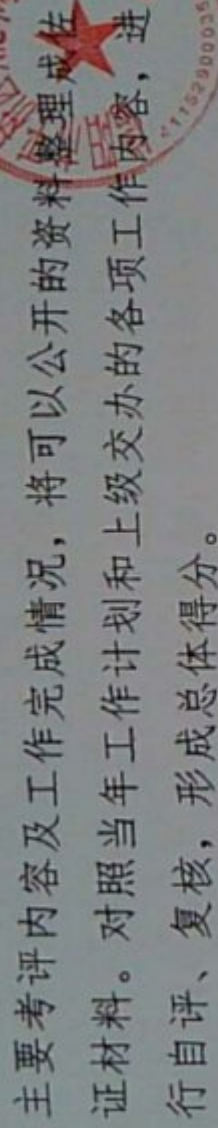 主要考评内容及工作完成情况，将可以公开的资料整理成佐
证材料。对照当年工作计划和上级交办的各项工作内容，进
行自评、复核，形成总体得分。